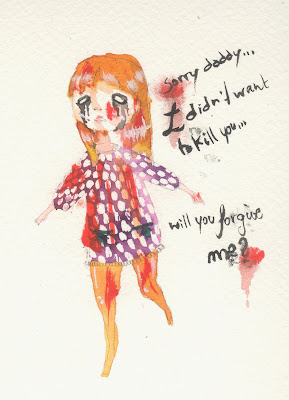 sorry daddy...
I didn't want
to kill you...
will you forgive
me?